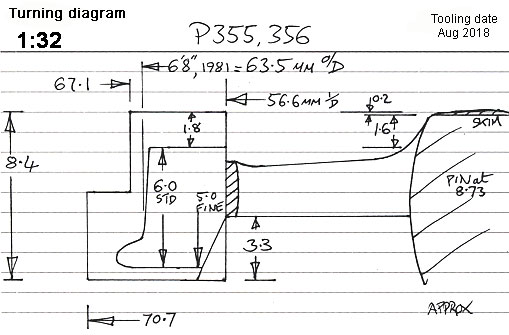 Turning diagram
1:32
P355, 356
Tooling date
Aug 2018
6'8", 1981 = 63.5 MM O/D
67.1
56.6MM I/D
0.2
1.8
1.6
SKIM
8.4
6.0
STD
5.0
FINE
PIN at
8.73
3.3
70.7
APPROX